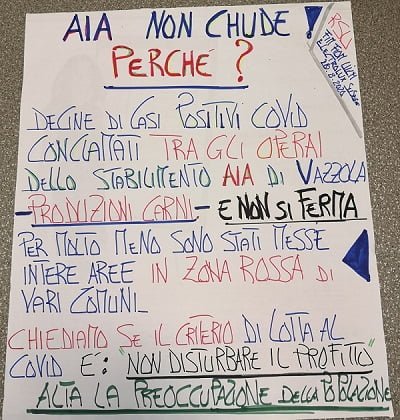 AIA NON CHUDE!
PERCHÉ?
RSU
FIM FIOM UILM
ELECTROLUX SUSEGANA
DECINE DI CASI POSITIVI COVID
CONCLAMATI TRA GLI OPERAI
DELLO STABILIMENTO AIA DI VAZZOLA
- PRODUZIONI CARNI - E NON SI FERMA
PER MOLTO MENO SONO STATI MESSE
INTERE AREE IN ZONA ROSSA DI
VARI COMUNI
CHIEDIAMO SE IL CRITERIO DI LOTTA AL
COVID E': "NON DISTURBARE IL PROFITTO"
ALTA LA PREOCCUPAZIONE DELLA POPOLAZIONE